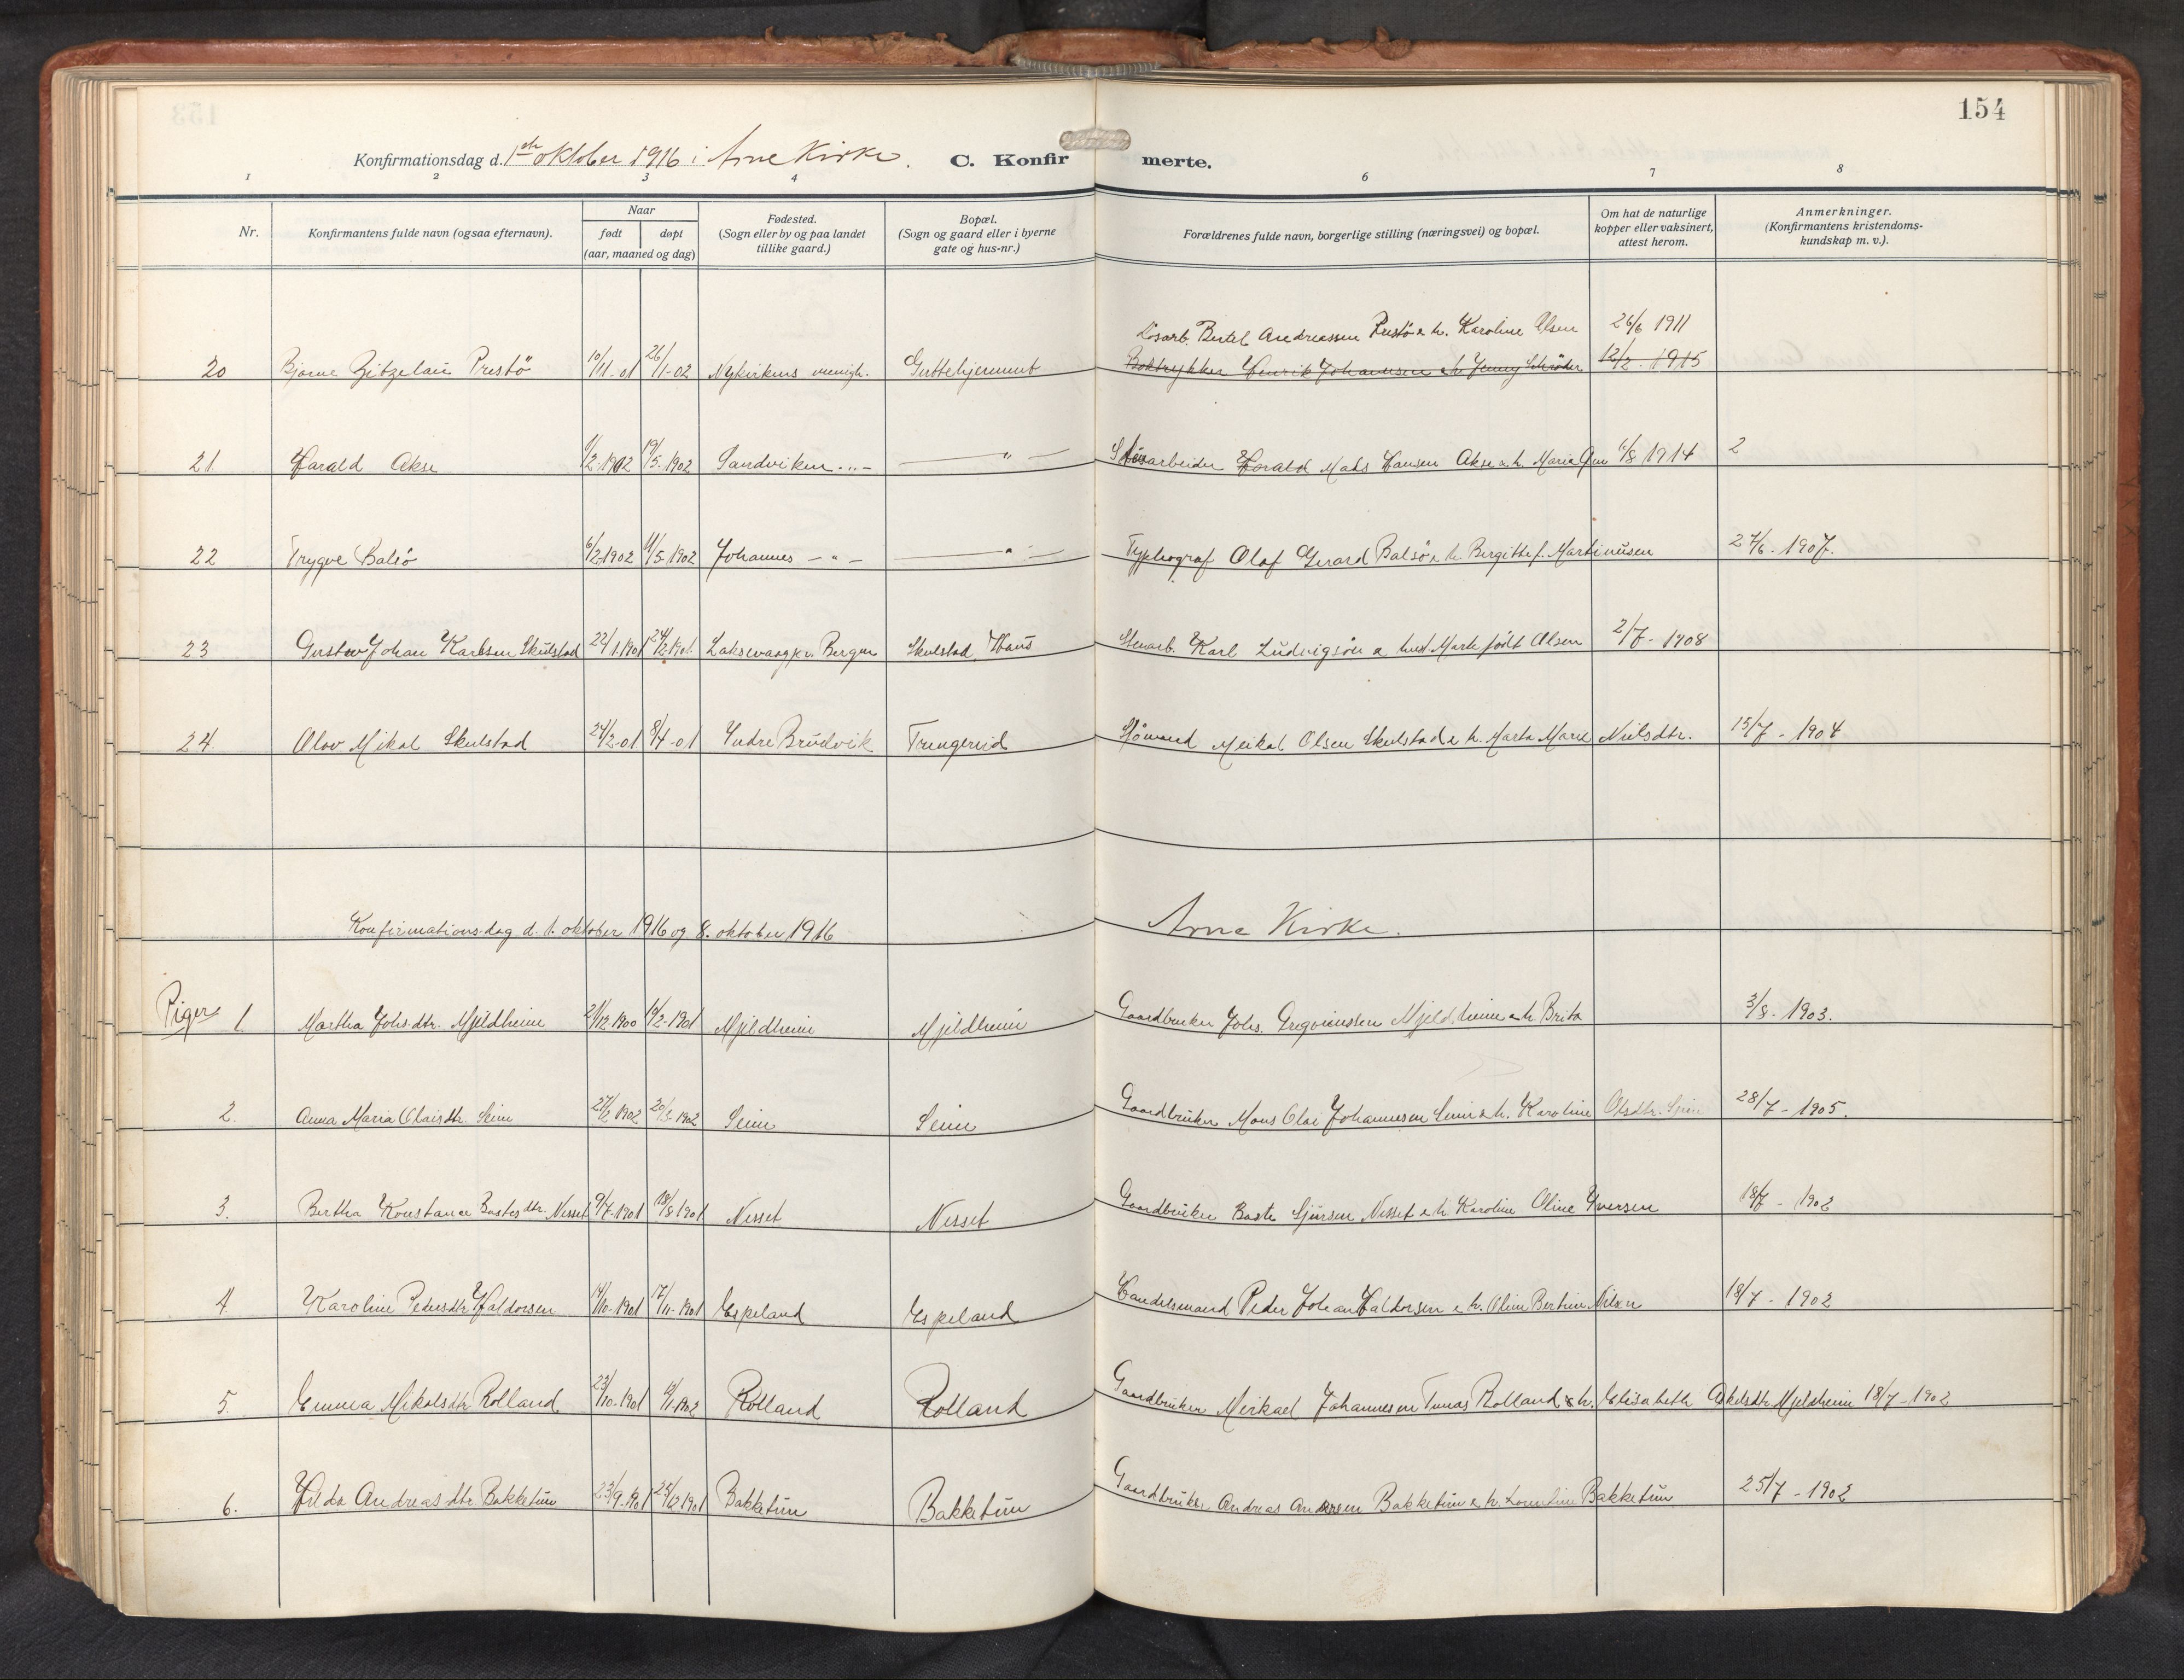 154
Konfirmationsdag d. 1ste oktober 1916 i Arne Kirke. C. Konfirmerte.
1 2 3 4 6 7 8
Nr. Konfirmantens fulde navn (ogsaa efternavn). Naar født døpt (aar, maaned og dag) Fødested. (Sogn eller by og paa landet tillike gaard.) Bopæl. (Sogn og gaard eller i byerne gate og hus-nr.) Forældrenes fulde navn, borgerlige stilling (næringsvei) og bopæl. Om hat de naturlige kopper eller vaksinert, attest herom. Anmerkninger. (Konfirmantens kristendomskundskap m. v.).
Løsarb. Bertel Andreassen Prestö & h. Karoline Olsen 26/6 1911
20 Bjarne Prestö 10/11-01 26/1-02 Nykirkens menigh. Guttehjemmet Boktrykker Henrik Johannesen & h. Jenny Schrøder 12/2-1915
21. Harald Akse 1/2-1902 19/5-1902 Sandviken -"- -"- arbeider Harald Mats Hansen Akse & h. Maria 11/8 1914 2
22 Trygve Balsö 6/2 1902 11/5-1902 Johannes -"- -"- Typhograf Olaf Gerard Balsö & h. Bergitte f. Martinusen 27/6-1907.
23 Gustav Johan Karlsen Skulstad 22/1.1901 24/2.1901. Laksevaag pr. Bergen Skulstad, Haus Stenarb. Karl Ludvigsön & hust. Marte født Olsen 2/7-1908
24. Olav Mikal Skulstad 24/2-01 8/4-01 Indre Bruvik Trengereid Sjömand Meikal Olsen Skulstad & h. Marta Marie Nielsdtr. 15/7-1904
Konfirmationsdag d. 1. oktober 1916 og 8. oktober 1916 Arne Kirke.
Piger 1. Martha Johs.dtr. Mjeldheim 21/12-1900 10/2-1901 Mjeldheim Mjeldheim Gaardbruker Johs. Gregoriussen Mjeldheim & h. Brita 3/8-1903.
2. Anna Maria Olaisdtr. Seim 27/2 1902 1902 Seim Seim Gaardbruker Mons Olai Johannesen Seim & h. Karoline Olsdtr. Seim 28/7-1905.
3. Bertha Konstance Bastesdtr. Nesset 9/7-1901 18/8 1901 Nesset Nesset Gaardbruker Baste Sjursen Nesset & h. Karoline Oline Iversen 18/7-1902
4. Karoline Pedersdtr Haldorsen 14/10-1901 17/11-1901 Espeland Espeland Handelsmand Peder Johan Haldorsen & h. Oline Bertine Nilsen 18/7-1902
5. Emma Mikalsdtr Rolland 23/10-1901 12/1-1902 Rolland Rolland Gaardbruker Meikael Johannesen Tunas Rolland & h. Elisabeth Askelsdtr. Mjeldheim 18/7-1902
6. Hilda Andreasdtr Bakketun 23/9.1901 25/12 1901 Bakketun Bakketun Gaardbruker Andreas Andersen Bakketun & h. Bakketun 25/7-1902